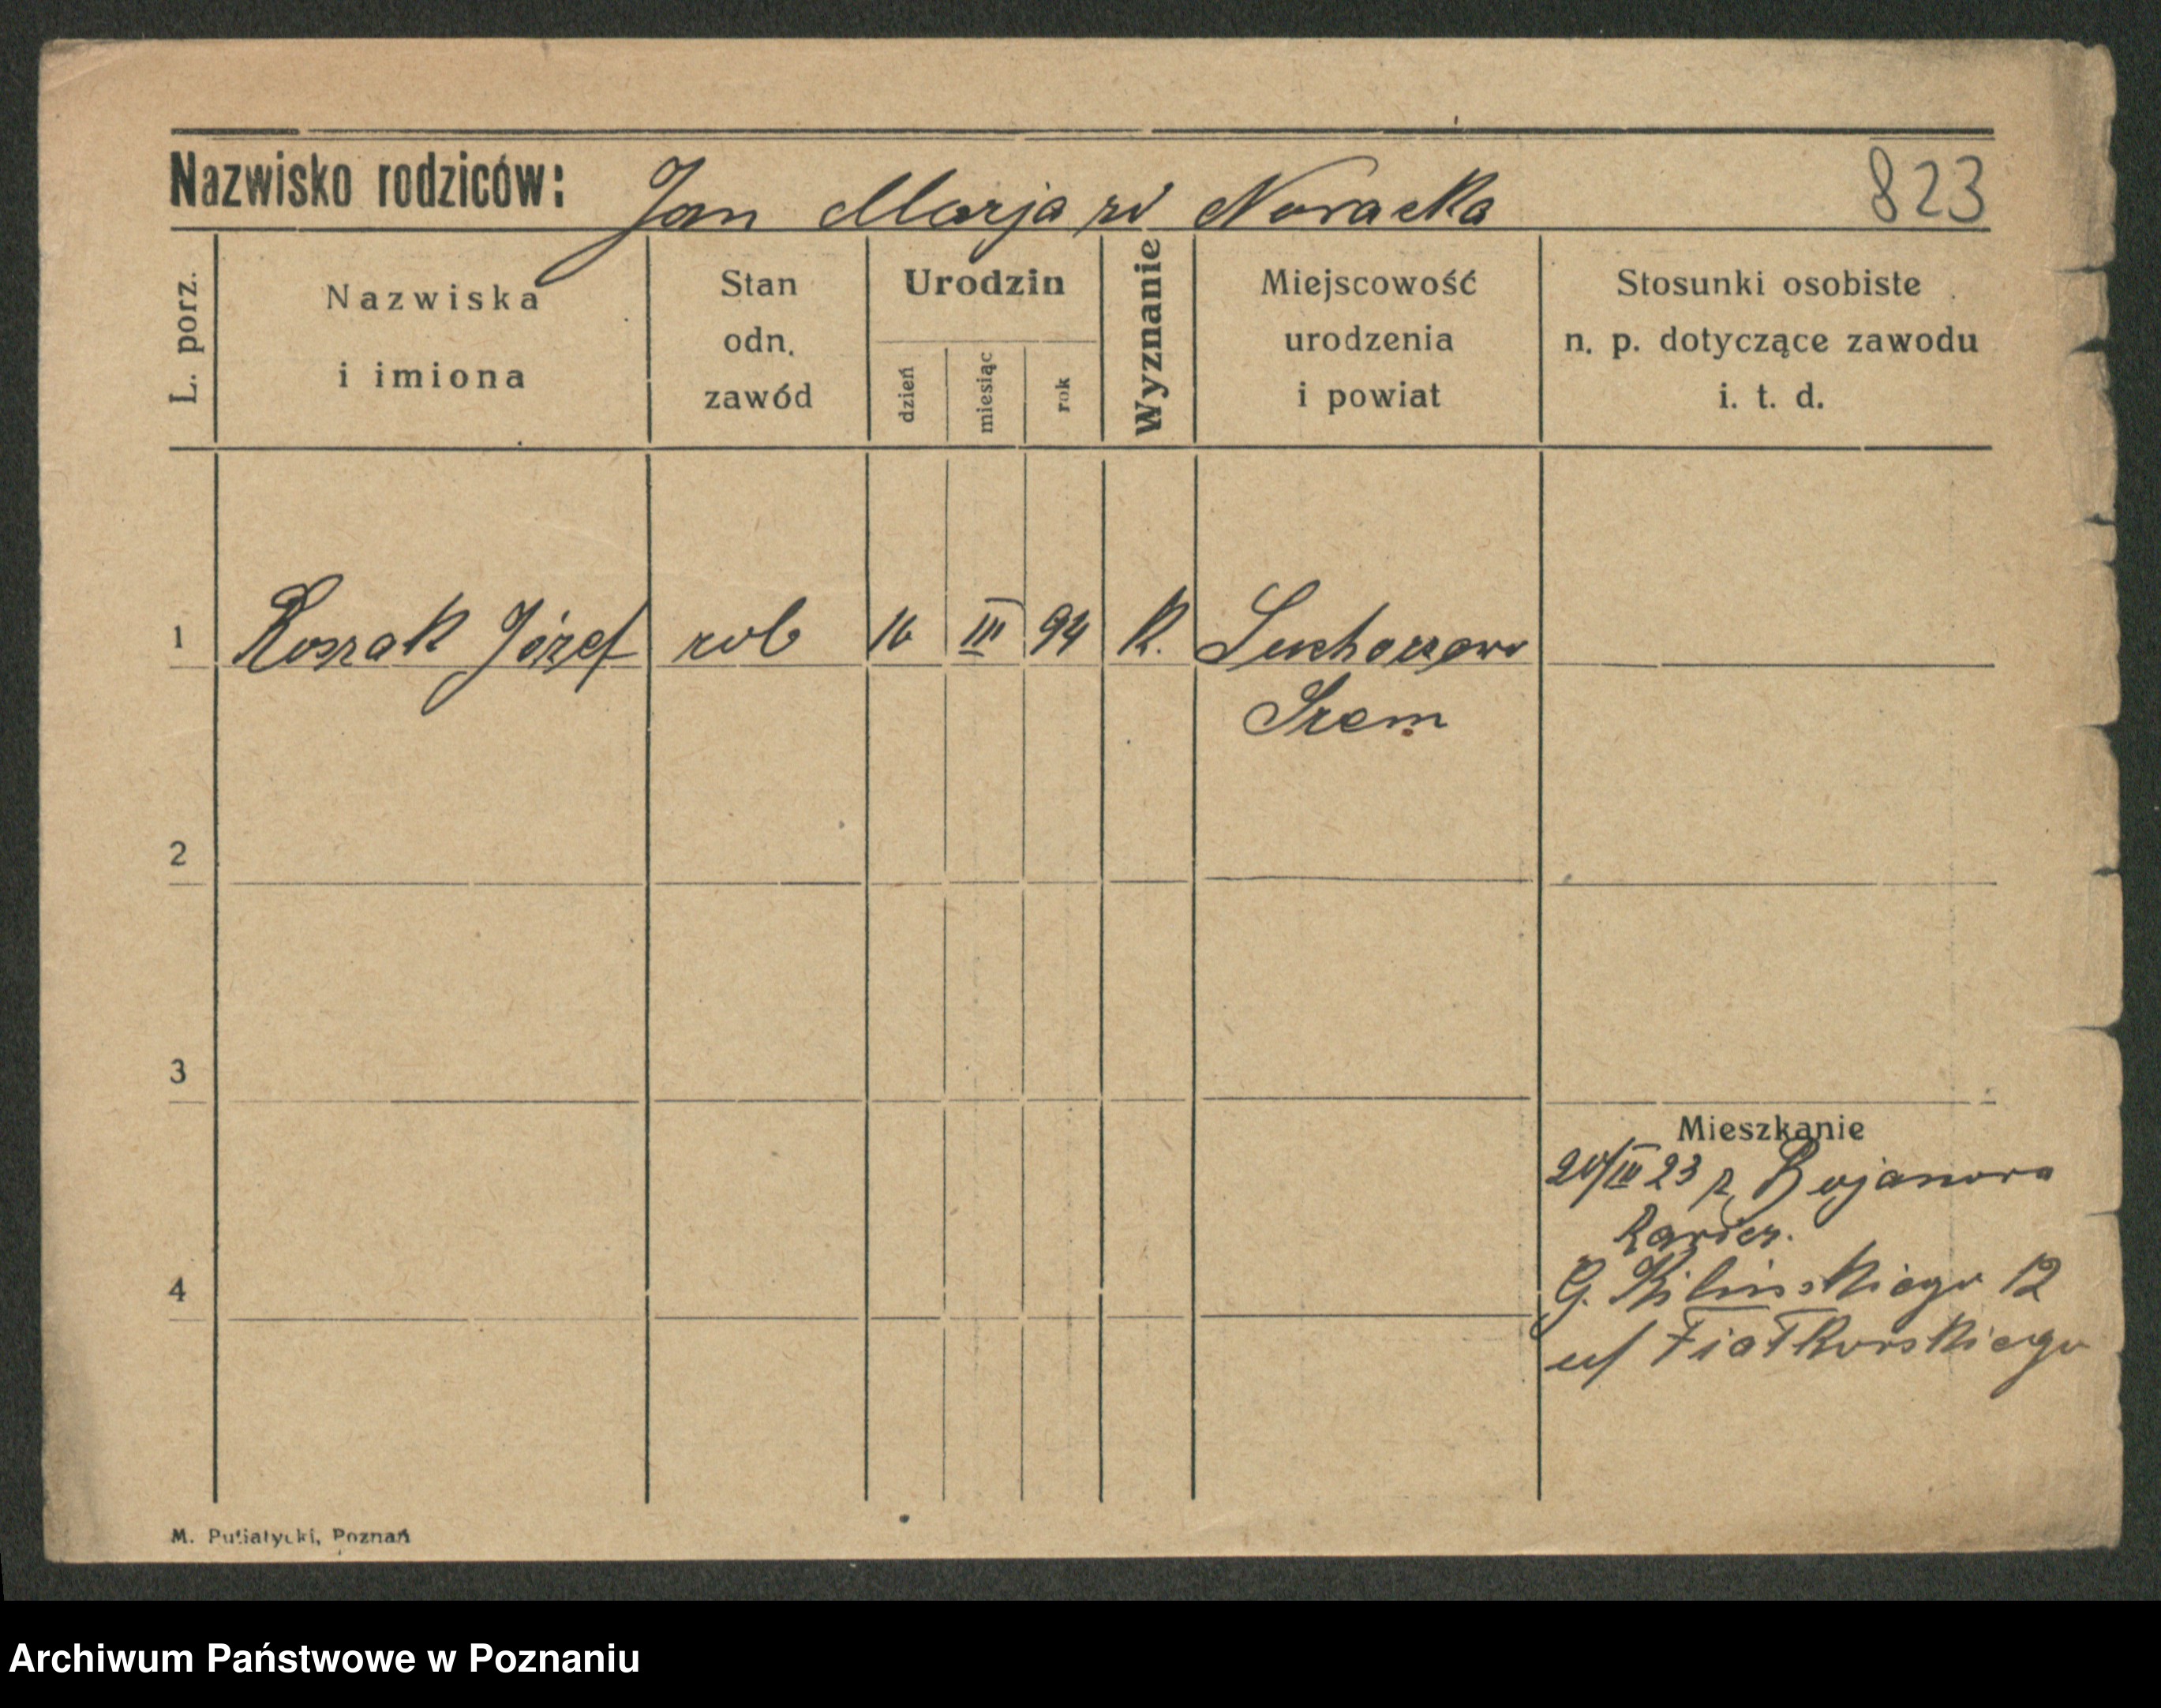 Nazwisko rodziców: Jan Marja zd Nowacka 823
L. porz.
Nazwiska
i imiona
Stan
odn.
zawód
Urodzin
dzień
miesiąc
rok
Wyznanie
Miejscowość
urodzenia
i powiat
Stosunki osobiste
n. p. dotyczące zawodu
i. t. d.
1 Koszak Józef rob 16 III 94 K. Suchorzewo
Srem
2
3
Mieszkanie
20/III 23 z Bojanowa
Rawicz.
4
G. Kilinskiego 12
u/ Fiałkowskiego
M. Putiatycki, Poznań
Archiwum Państwowe w Poznaniu